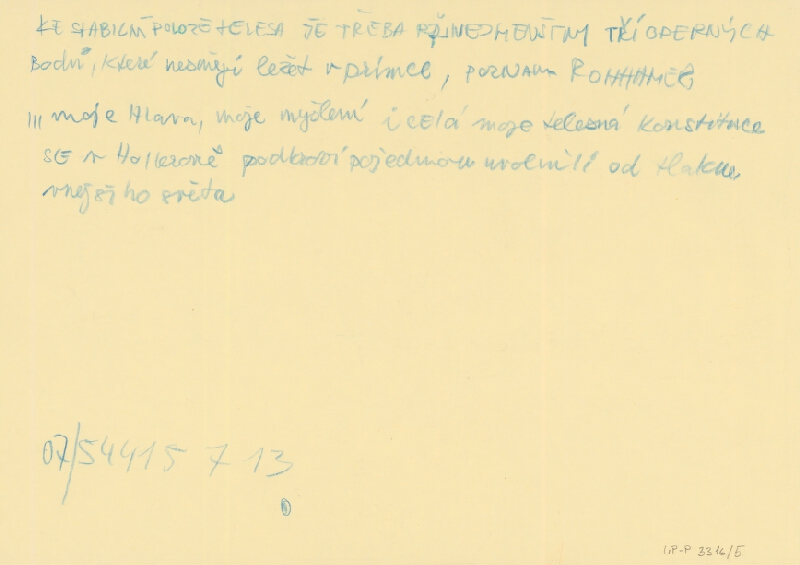 KE STABILNÍ POLOZE TĚLESA JE TŘEBA TŘÍ OPERNÝCH
BODŮ, které nesmějí ležet v přímce, POZNAM
III moje Hlava, moje myšlení i celá moje tělesná Konstituce
SE v podkroví pojednou uvolnili od tlaku
vnějšího světa
07/54415 7 13
LiP-P 3316/5